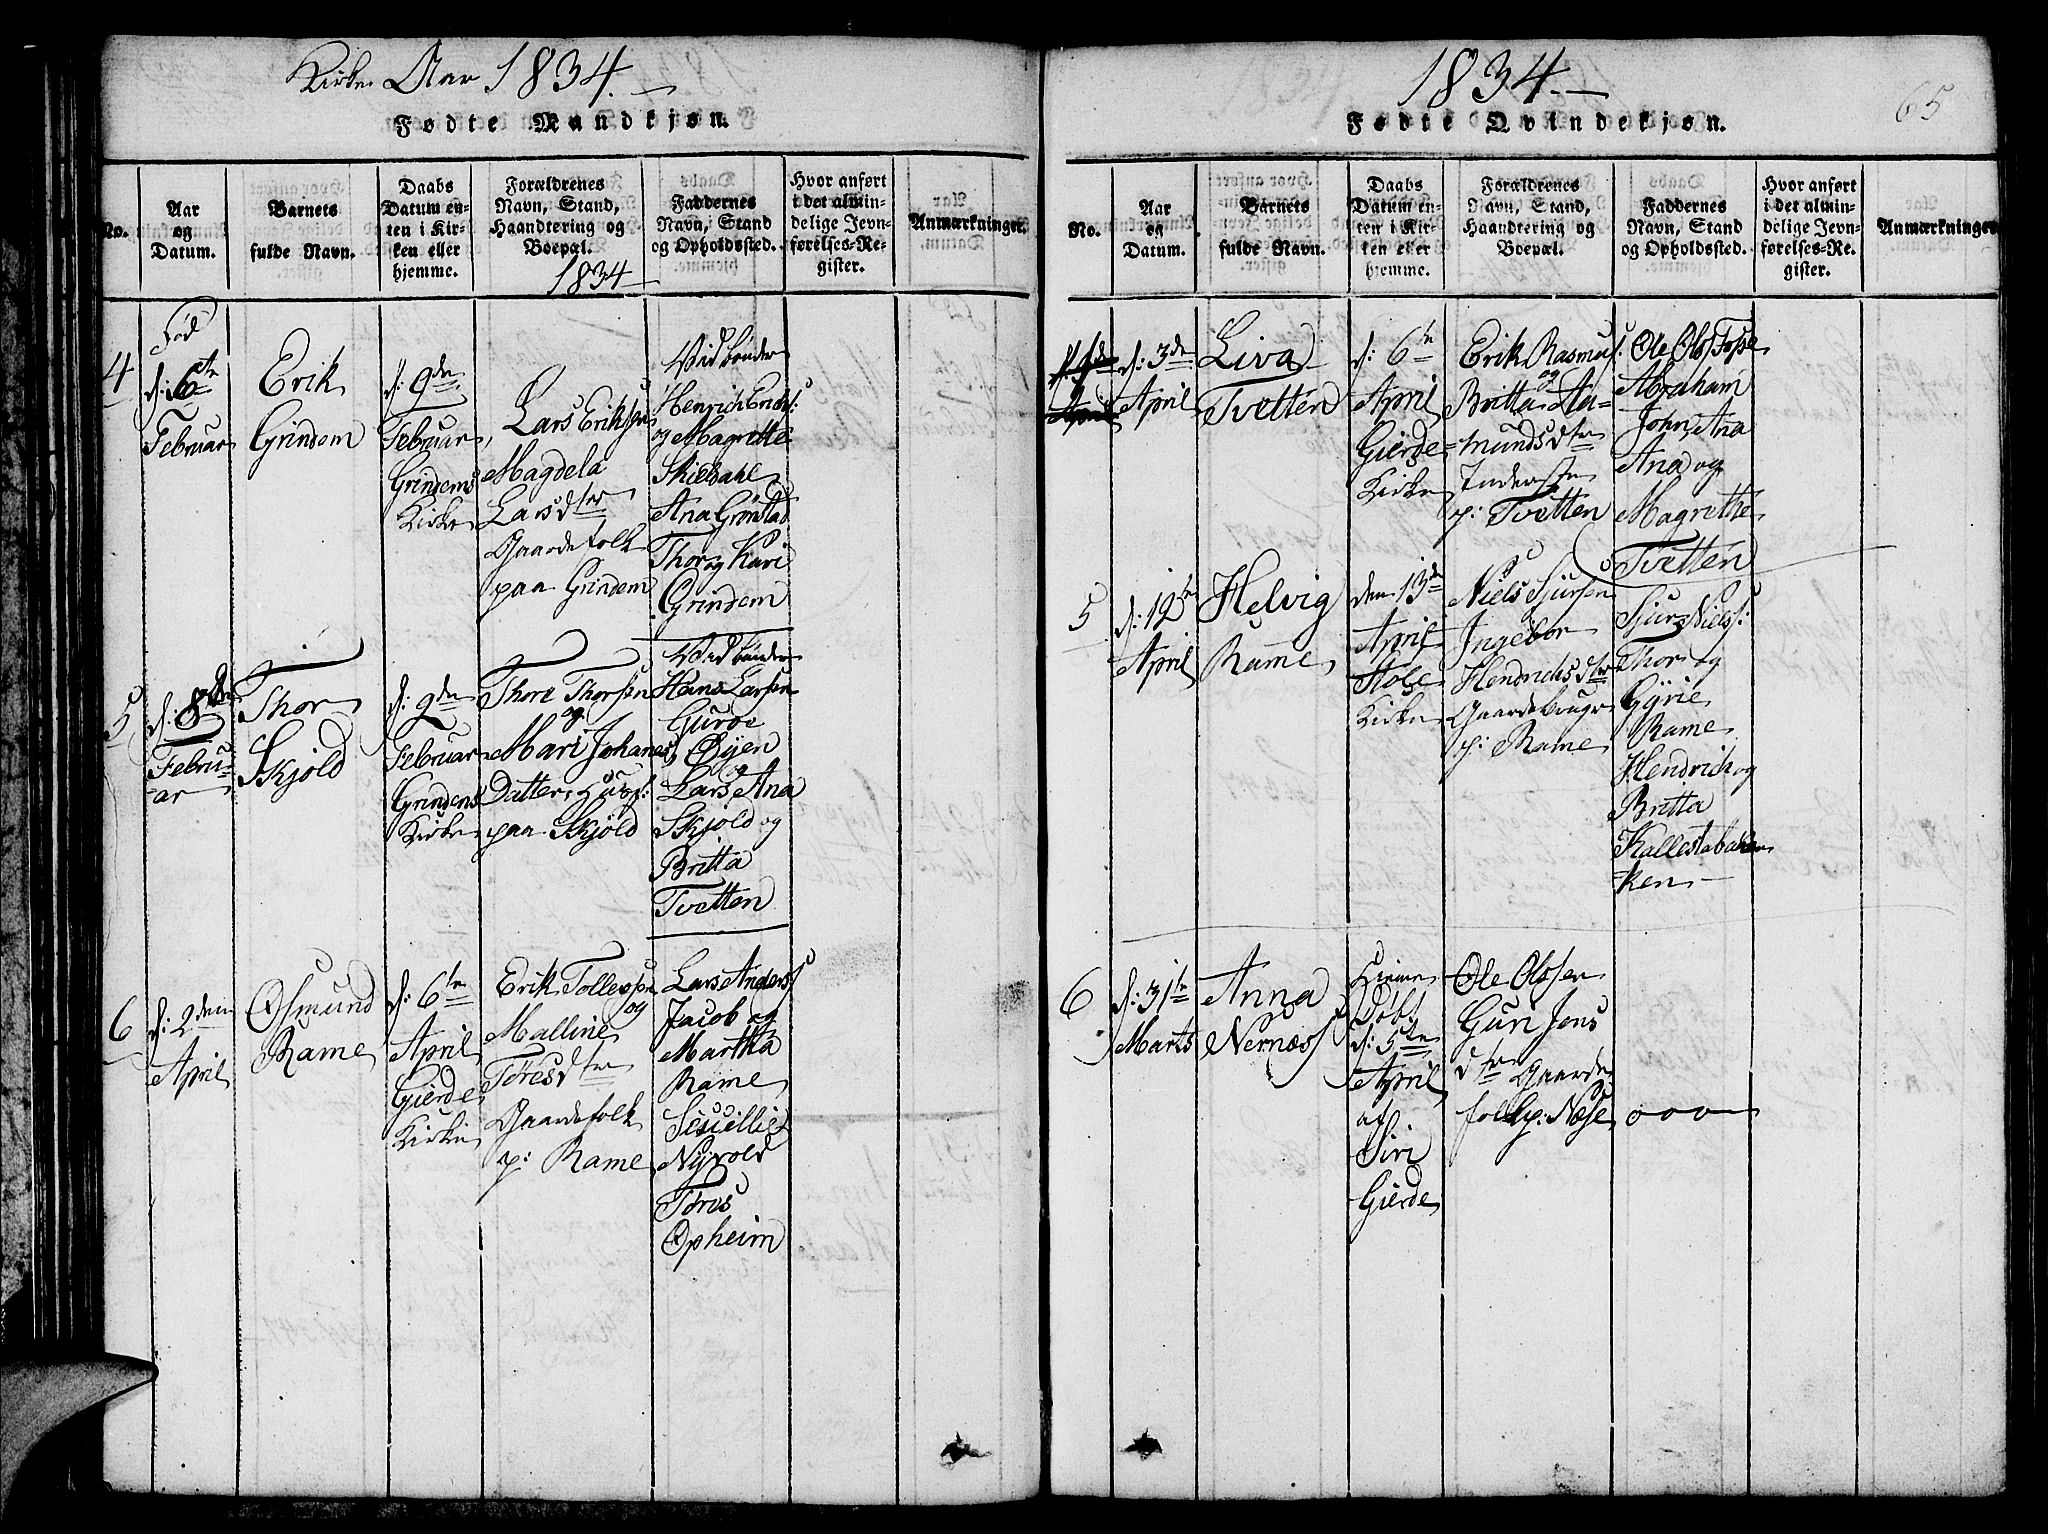 Kirke Aar 1834.
Fødte Mandkjøn.
No.
Aar
og
Datum.
Barnets
fulde Navn.
Daabs
Datum en-
ten i Kir-
ken eller
hjemme.
Forældrenes
Navn, Stand,
Haandtering og
Boepæl.
1834
Faddernes
Navn, Stand
og Opholdssted.
Hvor anført
i det almin-
delige Jevn-
førelses-Re-
gister.
Anmærkninger.
4
Fød
d: 6te
Februar
Erik
Grindem
d: 9de
Februar
Grindens
Kirke
Lars Eriksen
Magdela
Larsdtr
Gaardefolk
paa Grindem
Vidbønder
Henrich Erichs:
og Magrethe
Skieldahl
Ana Grönstad
Thor og Kari
Grindem
5
d: 8de
Febru-
ar
Thor
Skjold
d: 9de
Februar
Grindens
Kirke
Thore Thorsen
og
Mari Johanes
Datter, Husf:
paa Skjold
Vidbønder
Hans Larsen
Guroe
Øyen
Lars og Ana
Skjold og
Britta
Tvetten
6
d: 2den
April
Osmund
Rame
d: 6te
April
Gierde
Kirke
Erik Tollefsen
og
Malline
Töresdtr
Gaardefolk
p: Rame
Lars Anders:
Jacob og
Martha
Rame
Nijvold
Töres
Opheim
1834.
65
Fødte Qvindekjøn.
No.
Aar
og
Datum.
Barnets
fulde Navn.
Daabs
Datum en-
ten i Kir-
ken eller
hjemme.
Forældrenes
Navn, Stand,
Haandtering og
Boepæl.
Faddernes
Navn, Stand
og Opholdssted.
Hvor anført
i det almin-
delige Jevn-
førelses-Re-
gister.
Anmærkninger
d: 3de
April
Liva
Tvetten
d: 6te
April
Gierde
Kirke
Erik Rasmus:
og
Britta Aa-
mundsdtr
Inderste
p: Tvetten
Ole Ols: Fosse
Abraham
John, Ana
Ana og
Magrethe
Tvetten
5
d: 12te
April
Helvig
Rame
den 13de
April
Stole
Kirke
Niels Sjursen
og
Ingebor
Hendrichsdtr
Gaardebruger
p: Rame
Sjur Niels:
Thor og
Gÿrie
Rame
Hendrich og
Britta
Kallestabakken
ken
6
d: 31te
Marts
Anna
Nernæs
Hieme
Døbt
d: 5te
April
af
Siri
Gierde
Ole Olssen
Guri Jens
dtr Gaarde
folk p: Næse